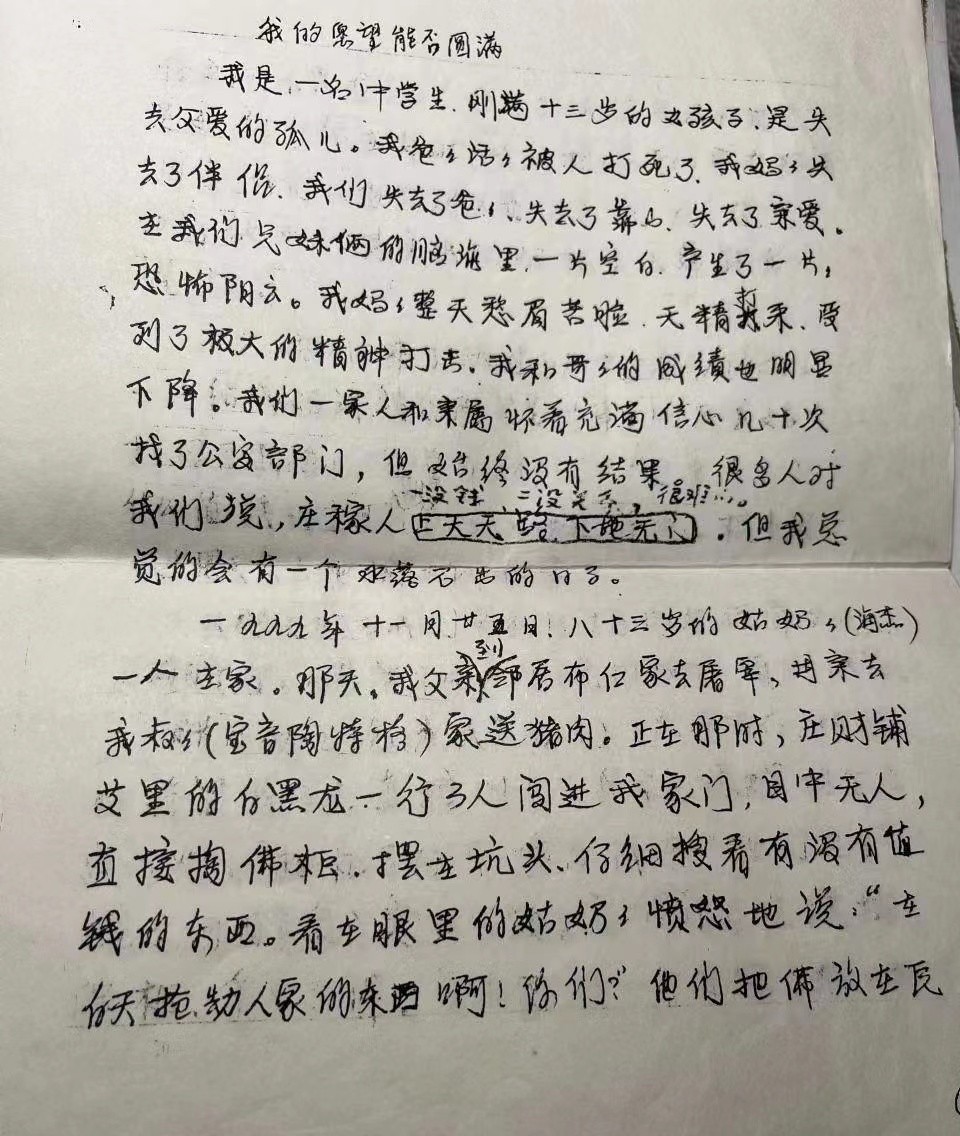 我的愿望能否圆满
我是一名中学生.刚满十三岁的女孩子、是失
去父爱的孤儿。我爸々活々被人打死了.我妈々失
去了伴侣.我们失去了爸々、失去了靠山.失去了亲爱。
在我们兄妹俩的脑海里.一片空白.产生了一片々
恐怖阴云。我妈々整天愁眉苦脸.无精打采.受
到了极大的精神打击.我和哥々的成绩也明显
下降。我们一家人和亲属怀着充满信心几十次
找了公安部门,但始终没有结果。很多人对
一没钱、二没关系,很难…。
我们说,庄稼人上天无路.下地无门.但我总
觉的会有一个水落石出的日子。
一九九九年十一月廿五日.八十三岁的姑奶々(海杰)
一人在家。那天.我父亲到邻居布仁家去屠宰,母亲去
我叔々(宝音陶特格)家送猪肉。正在那时,庄财铺
艾里的白黑龙一行3人闯进我家门,目中无人,
直接掏佛柜.摆在坑头.仔细搜看有没有值
钱的东西。看在眼里的姑奶々愤怒地说:“在
白天抢劫人家的东西啊!你们?他们把佛放在瓦